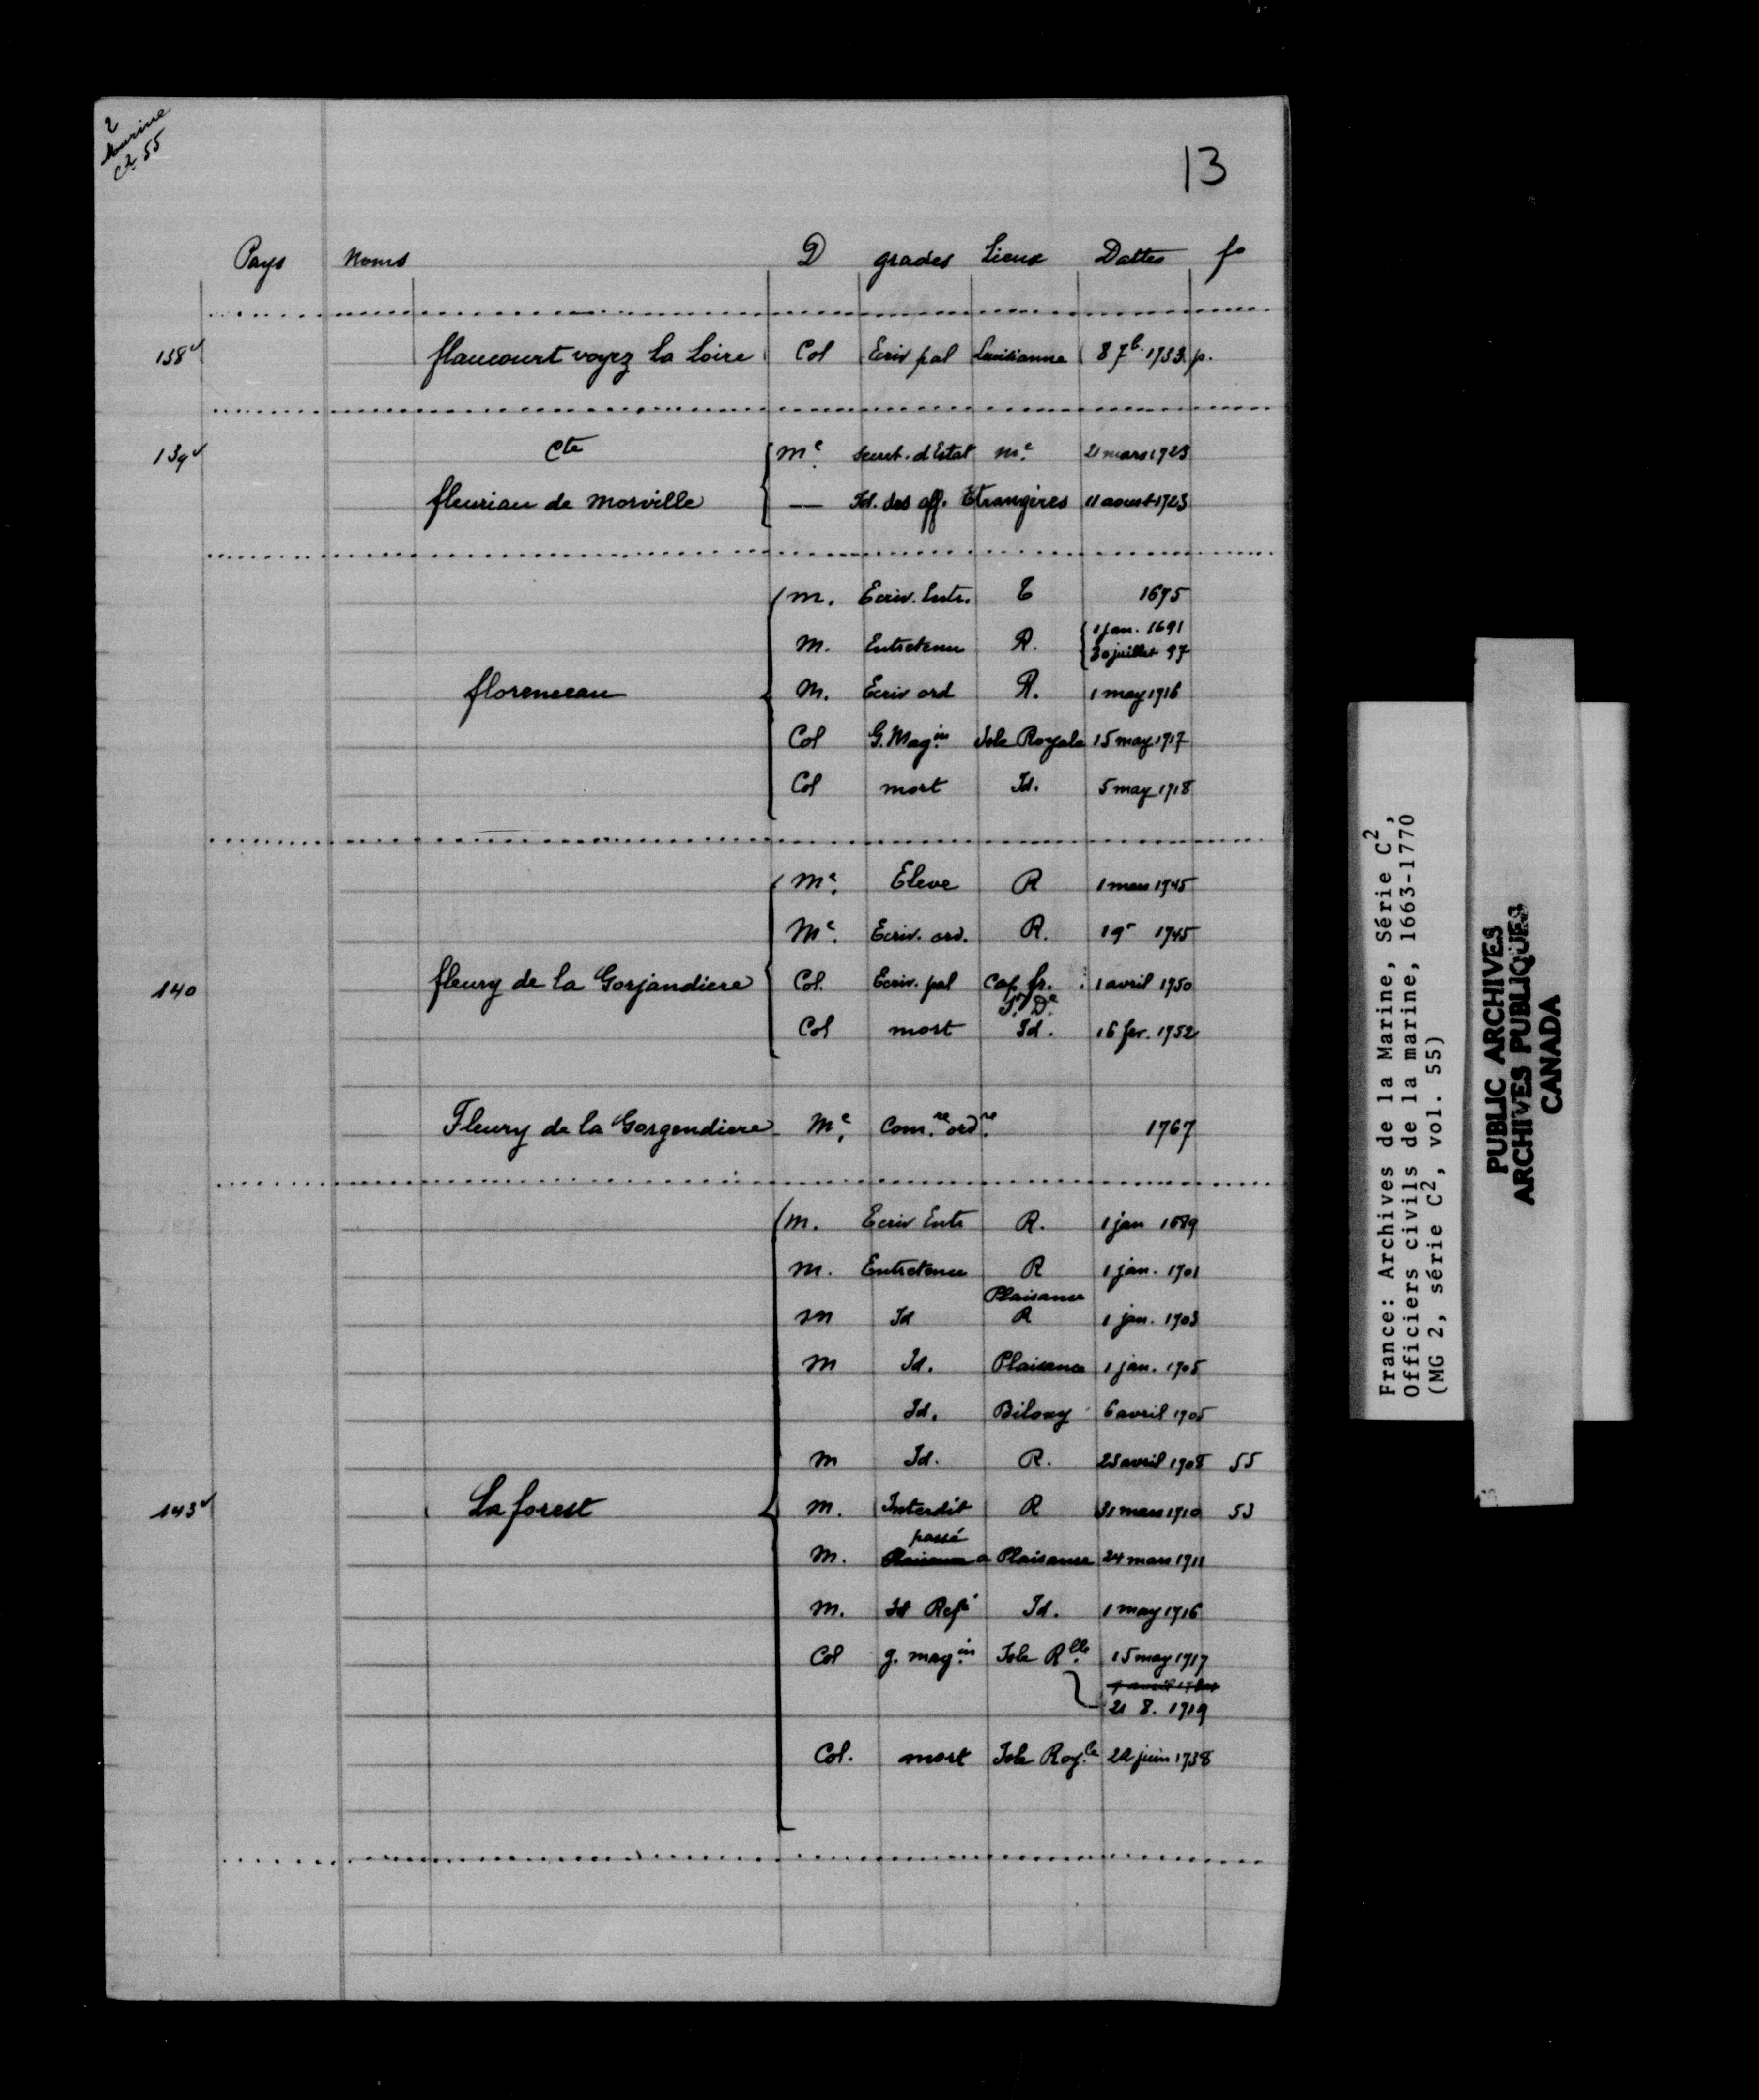 2
Marine
C2. 55
13
Pays Noms D grades Lieux Dattes fo
138v flaucourt voyez la Loire Col Ecriv pal Louisianne 8 7b. 1733 p.
139v Cte Me. Secret. d'Estat me. 21 mars 1723
fleuriau de Morville — Id. des aff. Etrangères 11 aoust 1723
m. Ecriv. Entr. 1675
M. Entretenu R. 1 jan. 1691
30 juillet 97
florenceau M. Ecriv ord R. 1 may 1716
Col G. Magin Isle Royale 15 may 1717
Col mort Id. 5 may 1718
Me. Eleve R 1 mars 1745
Me. Ecriv. ord. R. 1 9r 1745
140 fleury de la Gorjandiere Col. Ecriv. pal Cap fr. 1 avril 1750
St. De.
Col mort Id. 16 fev. 1752
Fleury de la Gorgendiere Me. Comre. ordre. 1767
M. Ecriv Entr R. 1 jan 1689
M. Entretenu R 1 jan. 1701
Plaisance
M Id R 1 jan. 1703
M Id. Plaisance 1 jan. 1705
Id. Biloxy 6 avril 1705
M Id. R. 23 avril 1708 55
143v La forest M. Interdit R 31 mars 1710 53
passé
M. Plaisance a Plaisance 24 mars 1711
M. Id Refé Id. 1 may 1716
Col g. magin Isle Rlle. 15 may 1717
21 8. 1719
Col. mort Isle Royle 22 juin 1738
France: Archives de la Marine, Série C2,
Officiers civils de la marine, 1663-1770
(MG 2, série C2, vol. 55)
PUBLIC ARCHIVES
ARCHIVES PUBLIQUES
CANADA